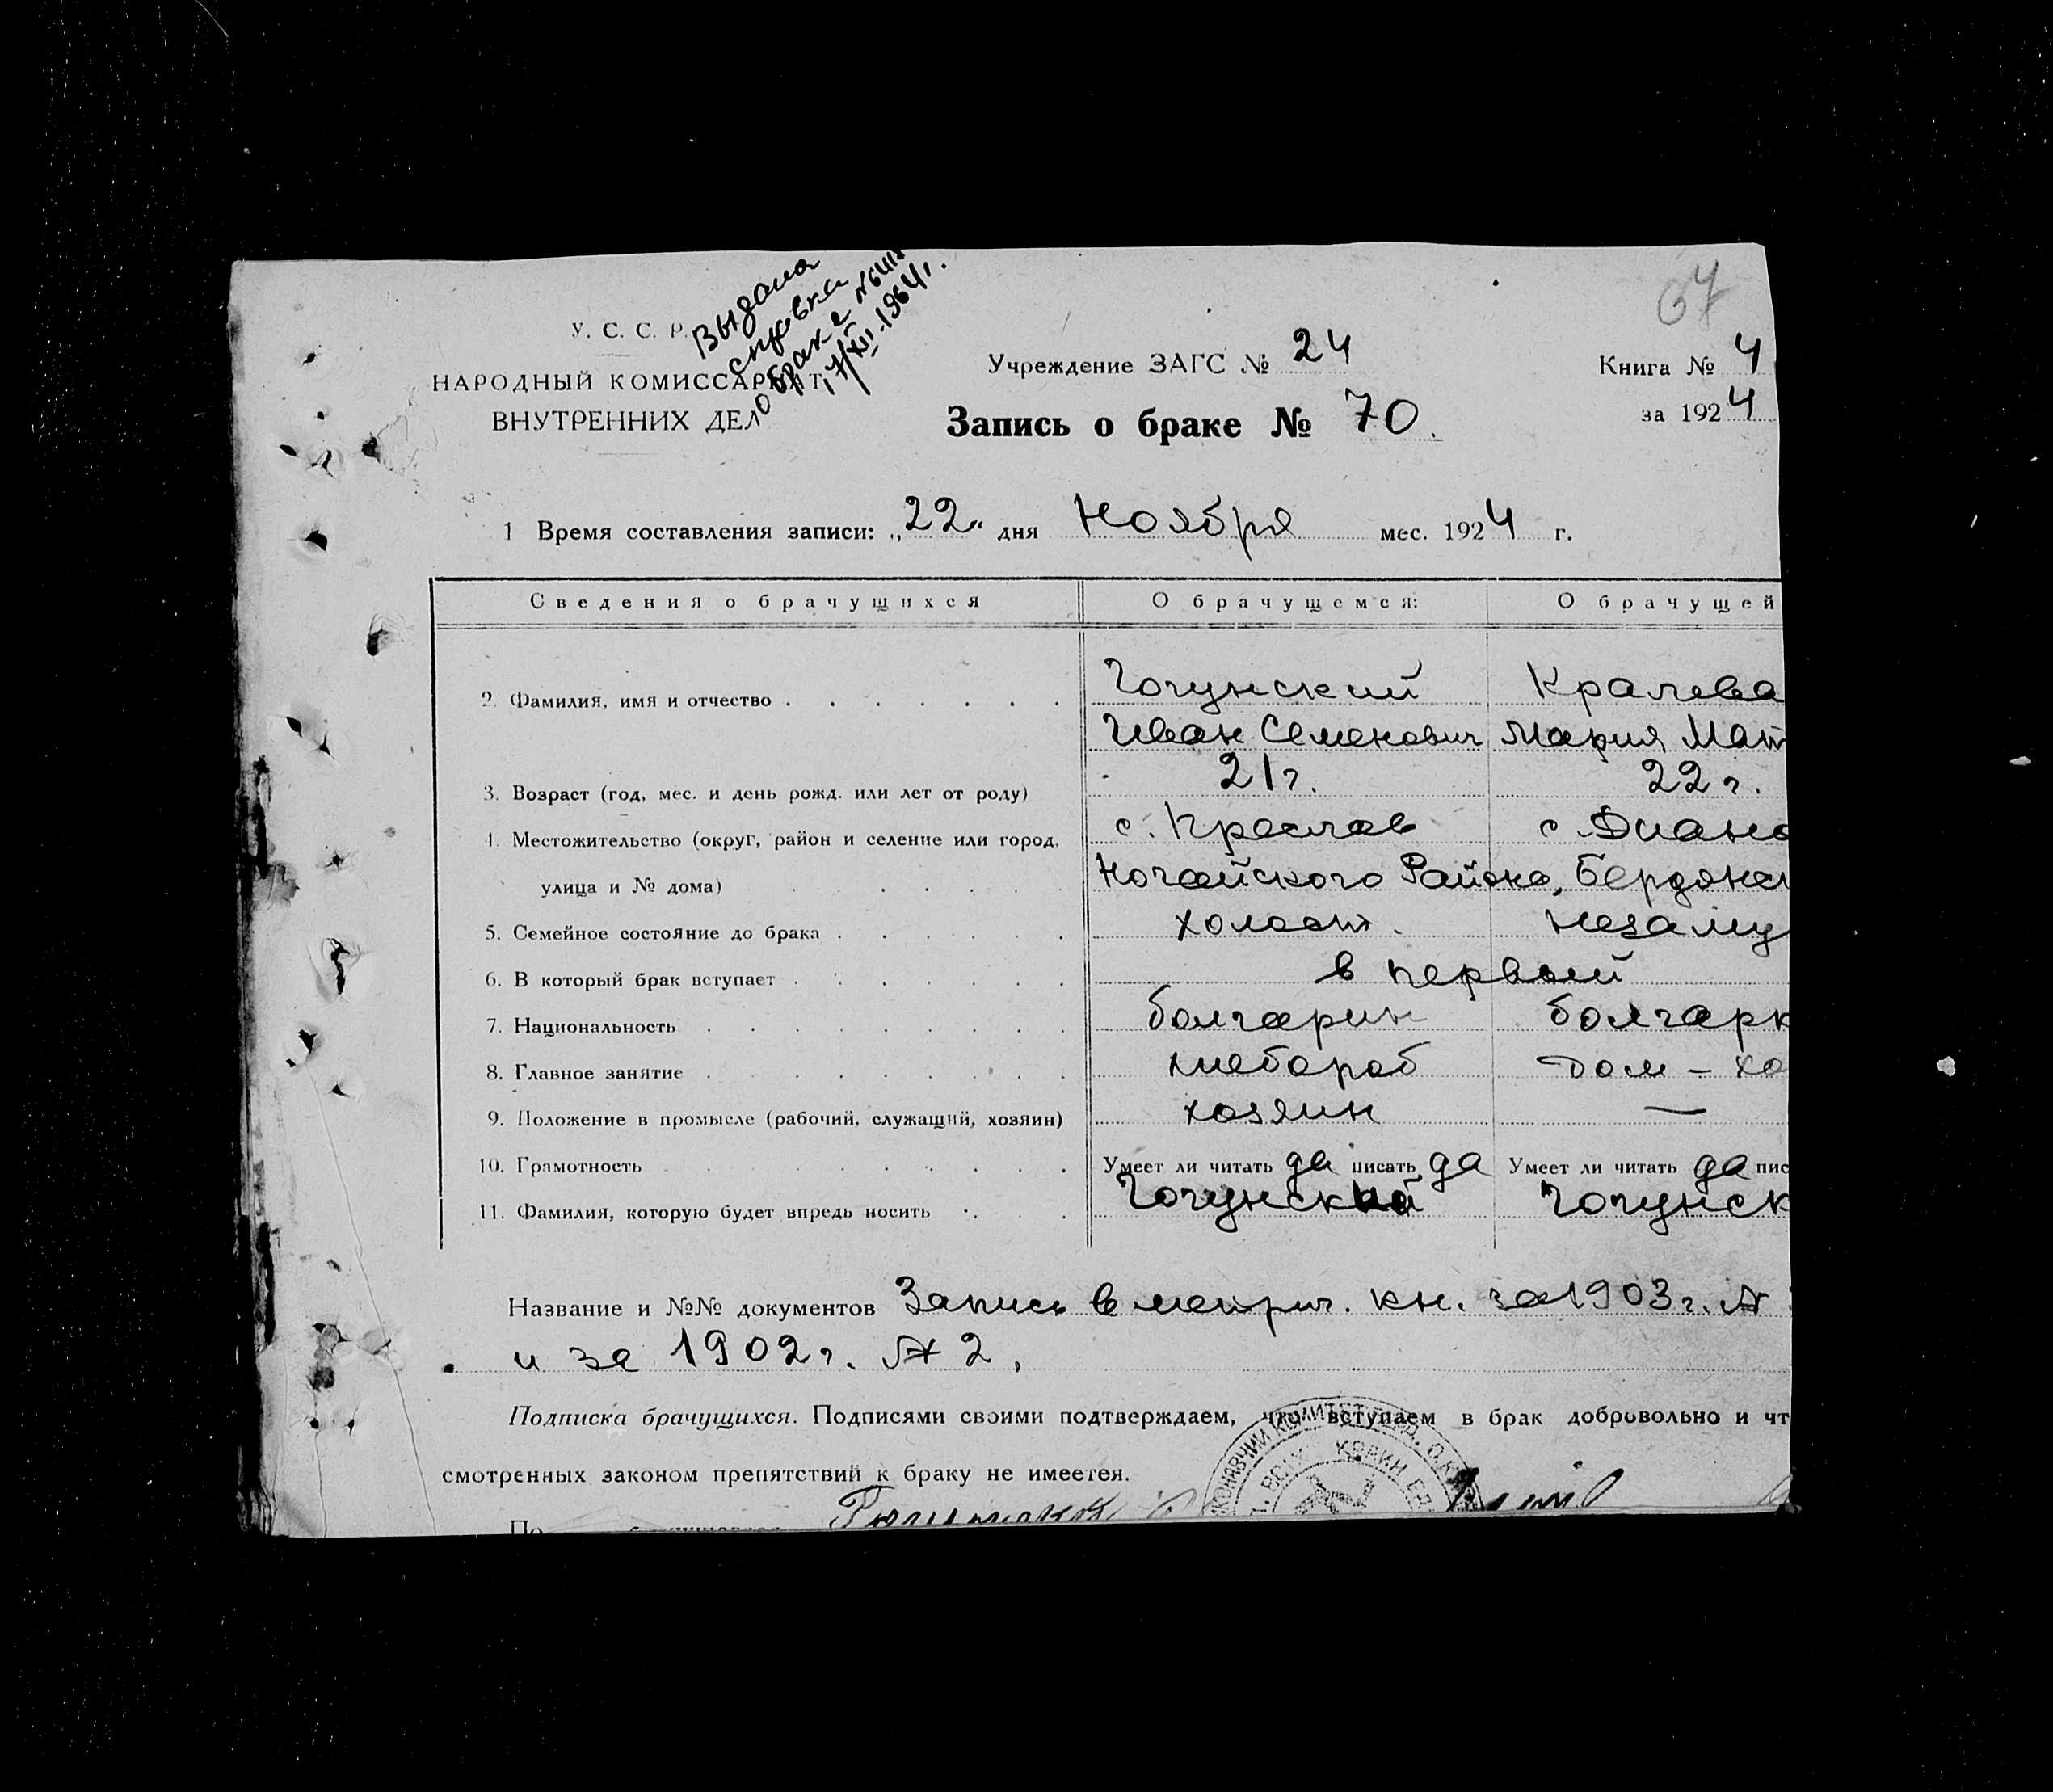 67
Выдана
справка
о браке №
17/XII-1964г.
У. С. С. Р.
НАРОДНЫЙ КОМИССАРИАТ
ВНУТРЕННИХ ДЕЛ
Учреждение ЗАГС № 24
Книга № 4
Запись о браке № 70.
за 1924
1 Время составления записи: „22" дня Ноября мес. 1924 г.
Сведения о брачущихся О брачущемся: О брачущей
2. Фамилия, имя и отчество Гогунский Кралева
Иван Семенович Мария Мат
3. Возраст (год, мес. и день рожд. или лет от роду) 21г. 22г.
4. Местожительство (округ, район и селение или город, с. Преслав с. Диано
улица и № дома) Ногайского Района, Бердянск
5. Семейное состояние до брака холост. незаму
6. В который брак вступает в первый
7. Национальность болгарин болгарк
8. Главное занятие хлебороб дом – хо
9. Положение в промысле (рабочий, служащий, хозяин) хозяин —
10. Грамотность Умеет ли читать да писать да Умеет ли читать да пис
11. Фамилия, которую будет впредь носить Гогунский Гогунск
Название и №№ документов Запись в метрич. кн. за 1903г. №
и за 1902г. № 2,
Подписка брачущихся. Подписями своими подтверждаем, что вступаем в брак добровольно и чт
смотренных законом препятствий к браку не имеется.